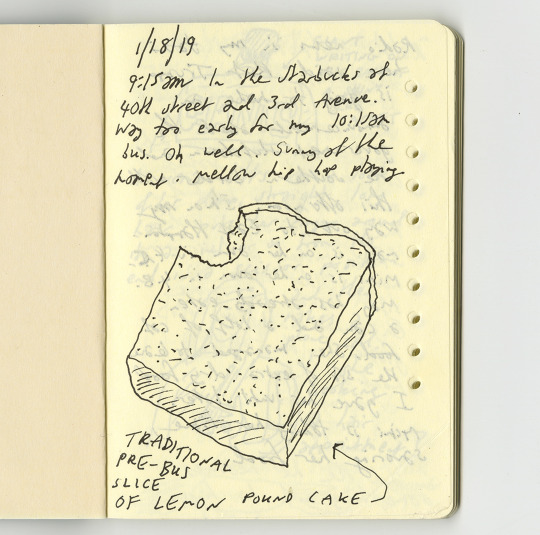 1/18/19
9:15am In the Starbucks at
40th street and 3rd Avenue.
Way too early for my 10:15am
bus. Oh well. Sunny at the
moment. Mellow hip hop playing
TRADITIONAL
PRE-BUS
SLICE
OF LEMON POUND CAKE